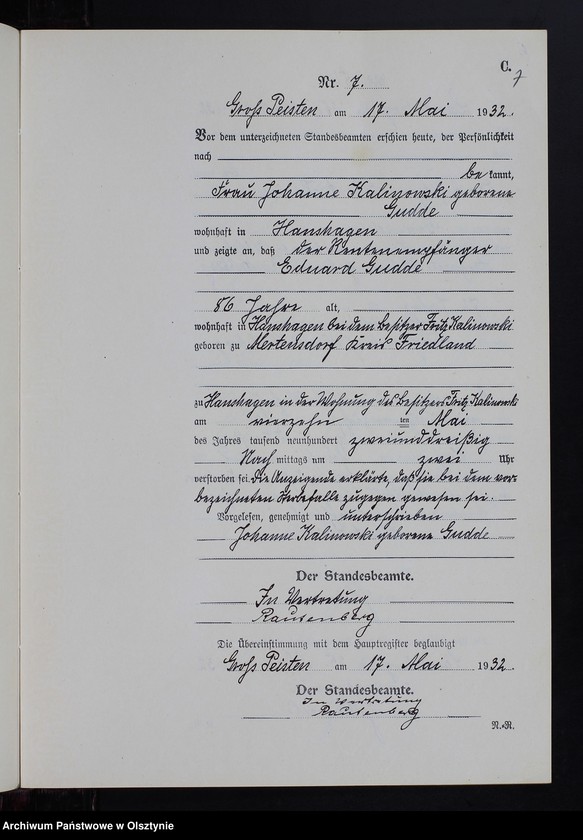 C.
7
Nr. 7.
Groß Peisten am 17. Mai 1932.
Vor dem unterzeichneten Standesbeamten erschien heute, der Persönlichkeit
nach
be kannt,
Frau Johanne Kalinowski geborene
Gudde
wohnhaft in Hanshagen
und zeigte an, daß der Rentenempfänger
Eduard Gudde
86 Jahre alt,
wohnhaft in Hanshagen bei dem Besitzer Fritz Kalinowski
geboren zu Mertensdorf Kreis Friedland
zu Hanshagen in der Wohnung des Besitzers Fritz Kalinowski
am vierzehn ten Mai
des Jahres tausend neunhundert zweiunddreißig
Nach mittags um zwei Uhr
verstorben sei. Die Anzeigende erklärte, daß sie bei dem vor
bezeichneten Sterbefalle zugegen gewesen sei.
Vorgelesen, genehmigt und unterschrieben
Johanne Kalinowski geborene Gudde
Der Standesbeamte.
In Vertretung
Rautenberg
Die Übereinstimmung mit dem Hauptregister beglaubigt
Groß Peisten am 17. Mai 1932.
Der Standesbeamte.
In Vertretung
Rautenberg
N.-R.
Archiwum Państwowe w Olsztynie